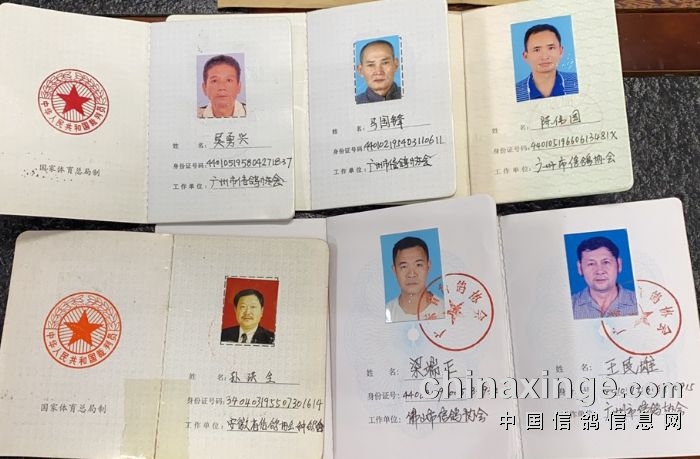 中华人民共和国裁判员
国家体育总局制
姓 名:吴勇兴
身份证号码:440105195804271837
工作单位:广州市信鸽协会
姓 名:马国锋
身份证号码:440102195403110611
工作单位:广州市信鸽协会
姓 名:陈伟国
身份证号码:44010519660613481X
工作单位:广州市信鸽协会
中华人民共和国裁判员
国家体育总局制
姓 名:孙洪生
身份证号码:340403195507301614
工作单位:安徽省信鸽协会
信鸽协会
姓 名:梁瑞正
身份证号码:440
工作单位:佛山市信鸽协会
信鸽协会
姓 名:王民雄
身份证号码:
工作单位:广州市信鸽协会
chinaxinge.com
中国信鸽信息网